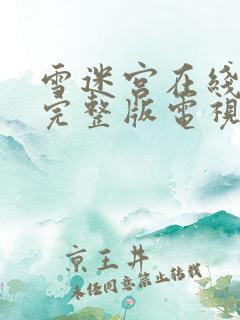 雪迷宫在綫
完整版電視
京王井
未经同意禁止转载